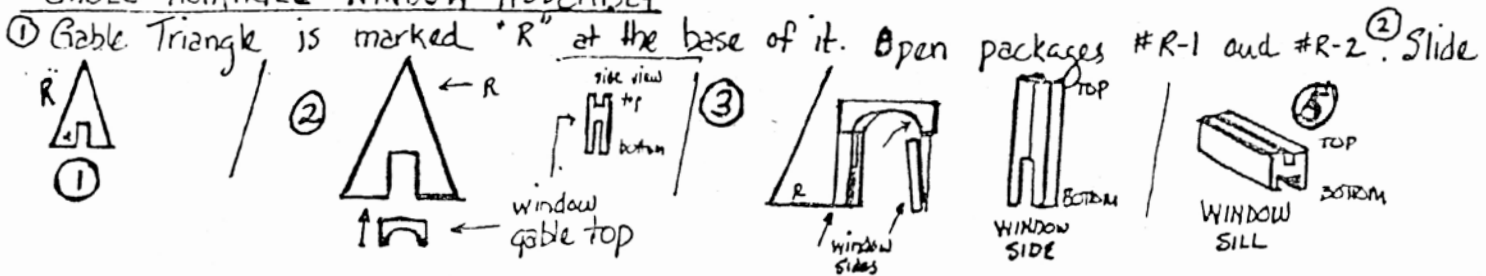 ① Gable Triangle is marked "R" at the base of it. Open packages #R-1 and #R-2. ② Slide
R
①
②
R
side view
top
bottom
window
gable top
③
R
window
sides
TOP
BOTTOM
WINDOW
SIDE
TOP
BOTTOM
WINDOW
SILL